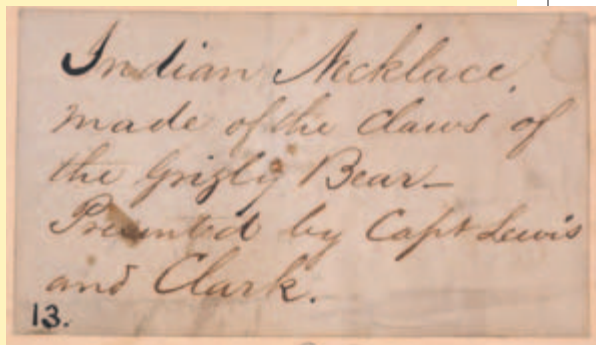 Indian Necklace,
made of the Claws of
the Grizly Bear—
Presented by Capt Lewis
and Clark.
13.